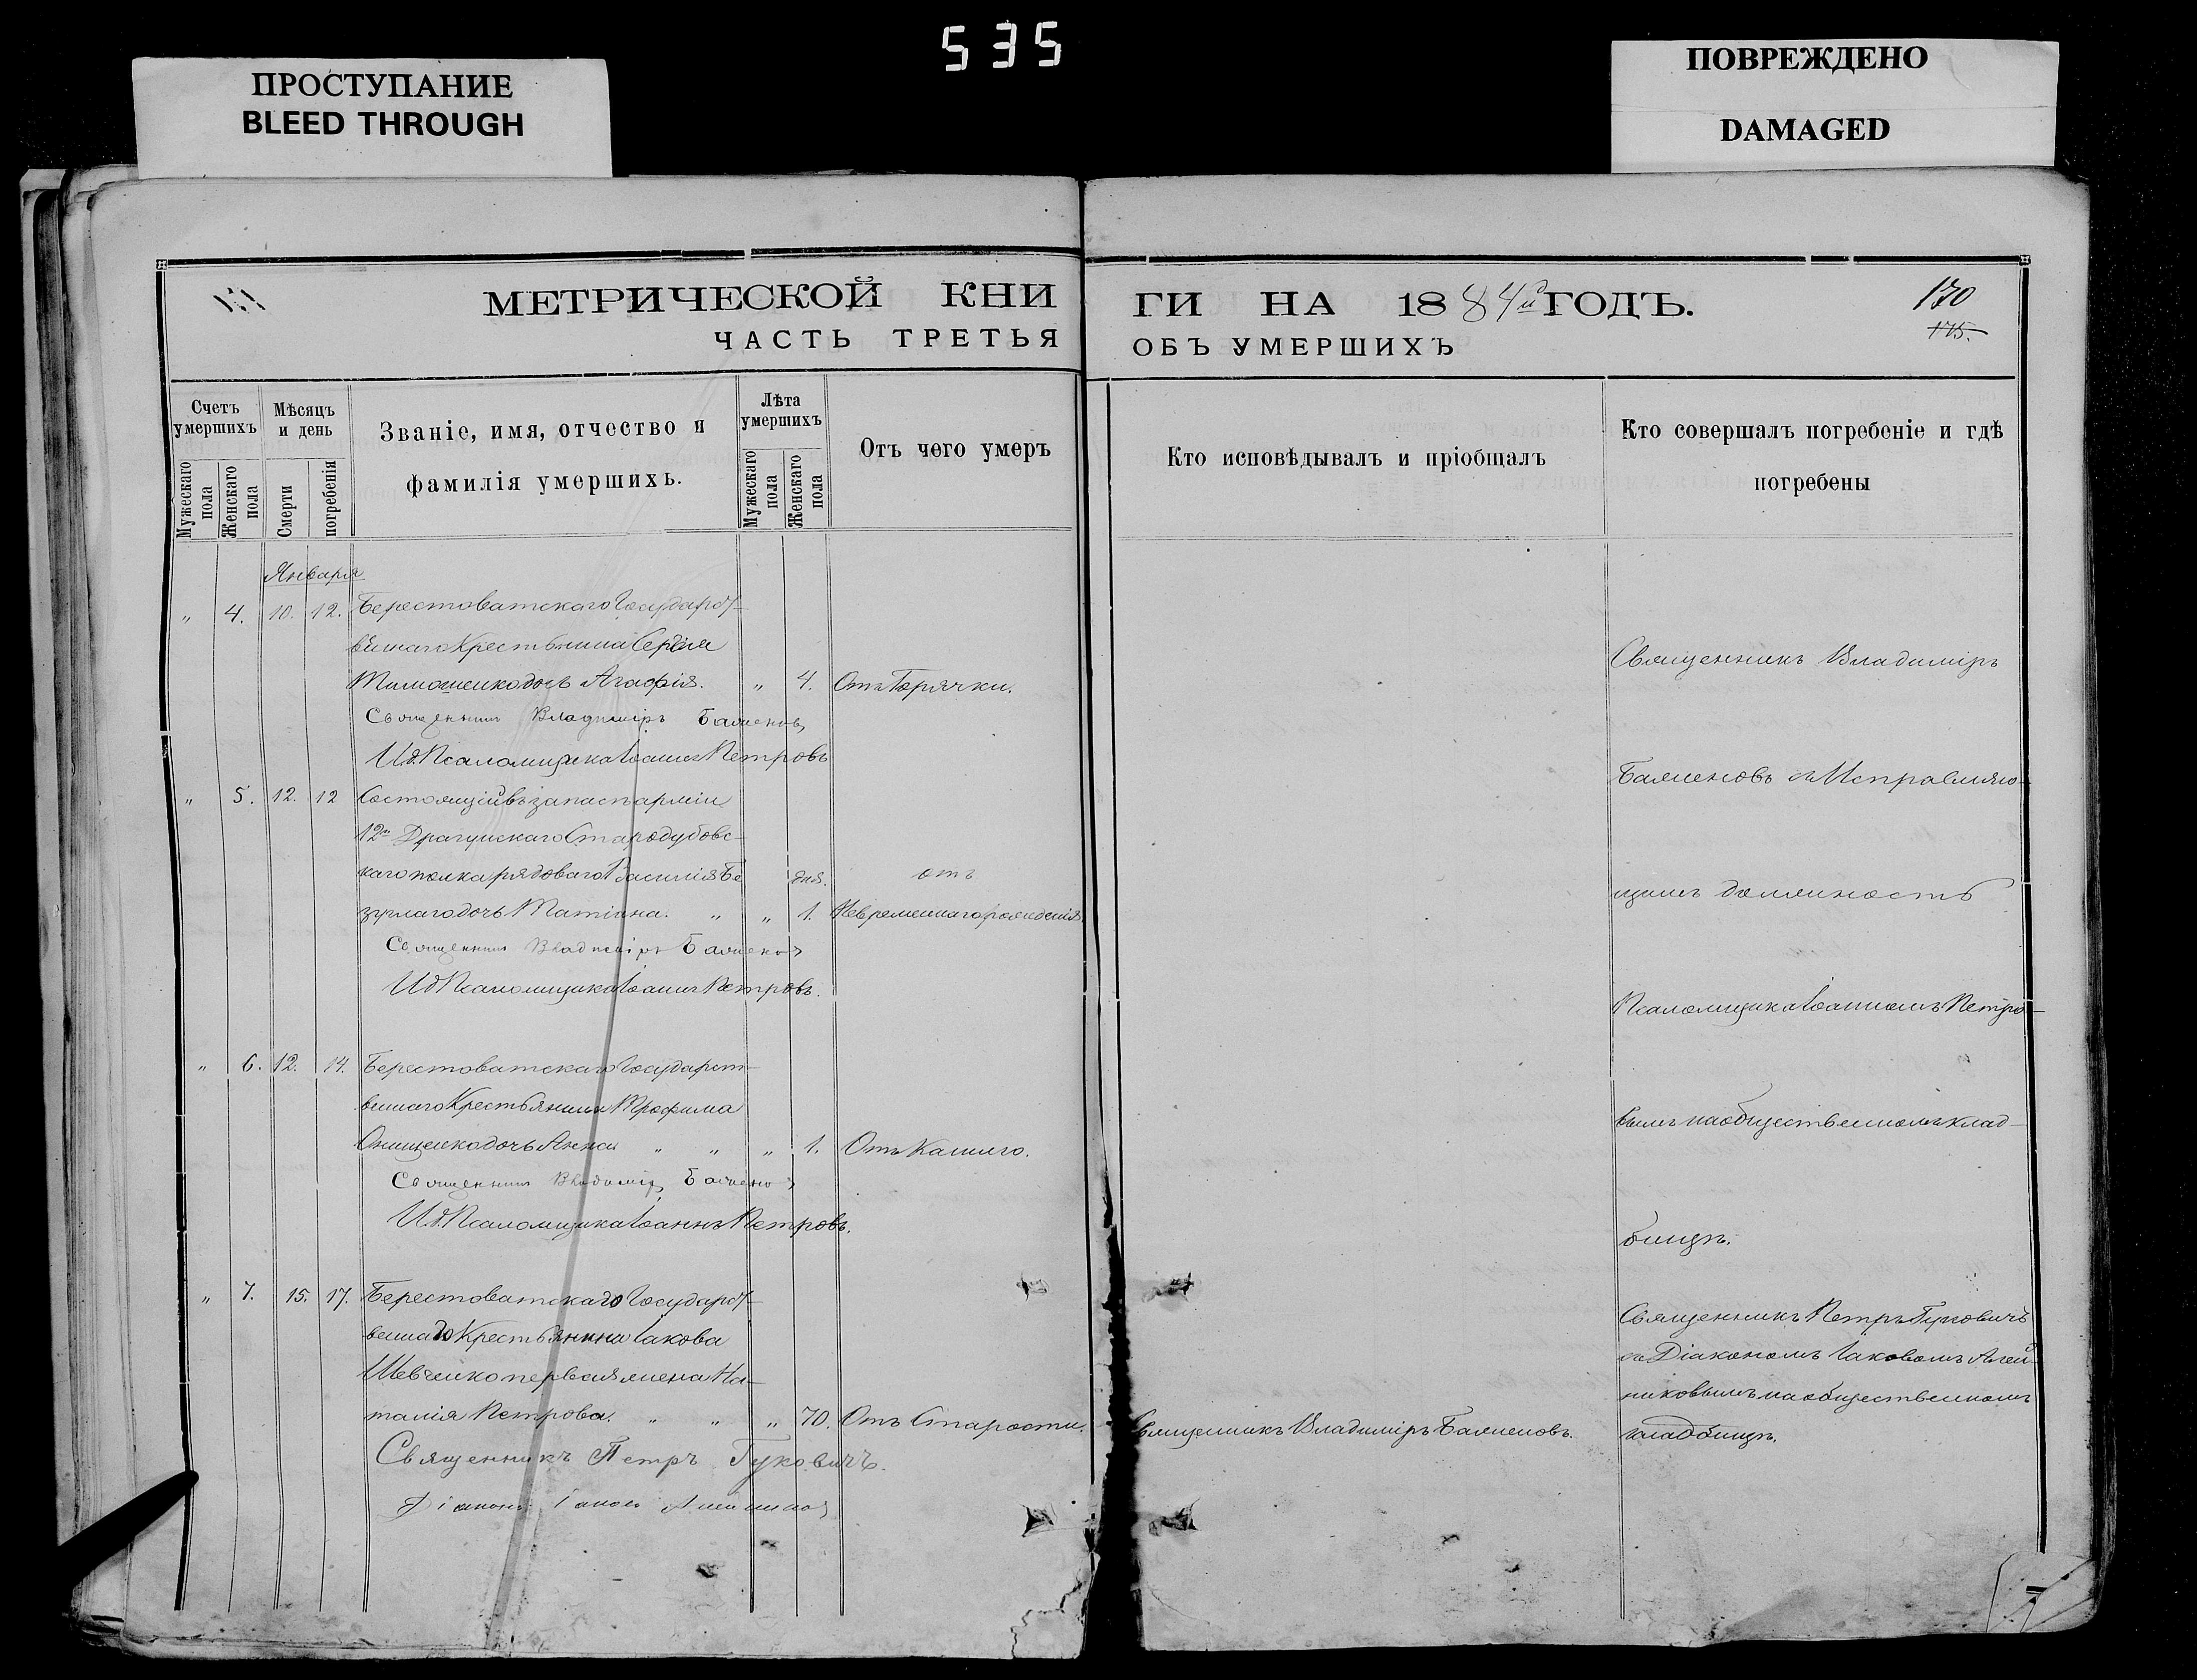 535
ПРОСТУПАНИЕ
BLEED THROUGH
ПОВРЕЖДЕНО
DAMAGED
МЕТРИЧЕСКОЙ КНИ
ГИ НА 1884й ГОДЪ.
170
175.
ЧАСТЬ ТРЕТЬЯ
ОБЪ УМЕРШИХЪ
Счетъ умершихъ
Мужескаго пола
Женскаго пола
Мѣсяцъ и день
Смерти
погребенія
Званіе, имя, отчество и
фамилія умершихъ.
Лѣта умершихъ
Мужескаго пола
Женскаго пола
Отъ чего умеръ
Кто исповѣдывалъ и пріобщалъ
Кто совершалъ погребеніе и гдѣ
погребены
Января
" 4. 10. 12. Берестоватскаго Государст-
веннаго Крестьянина Сергія
Тимошенко дочь Агафія. " 4. Отъ Горячки.
Священникъ Владиміръ Баженовъ
И.д. Псаломщика Іоаннъ Петровъ
Священникъ Владиміръ
Баженовъ съ Исправляю-
щимъ должность
Псаломщика Іоанномъ Петро-
вымъ на общественномъ клад-
бищѣ.
" 5. 12. 12 Состоящій въ запасѣ арміи
12го Драгунскаго Стародубовс-
каго полка рядоваго Василія Бе
дня. отъ
зуглаго дочь Татіана. " " 1. Невременнаго рожденія
Священникъ Владиміръ Баженовъ
И.д. Псаломщика Іоаннъ Петровъ.
" 6. 12. 14. Берестоватскаго Государст-
веннаго Крестьянина Трофима
Онищенко дочь Анна " " " 1. Отъ Кашлю.
Священникъ Владиміръ Баженовъ
И.д. Псаломщика Іоаннъ Петровъ.
" 7. 15. 17. Берестоватскаго Государст-
веннаго Крестьянина Іакова
Шевченко первая жена На-
талія Петрова. " " " 70. Отъ Старости. Священникъ Владиміръ Баженовъ.
Священникъ Петръ Гуковичъ.
Діаконъ Іаковъ
Священникъ Петръ Гуковичъ
съ Діакономъ Іаковомъ Алей-
никовымъ на общественномъ
кладбищѣ.